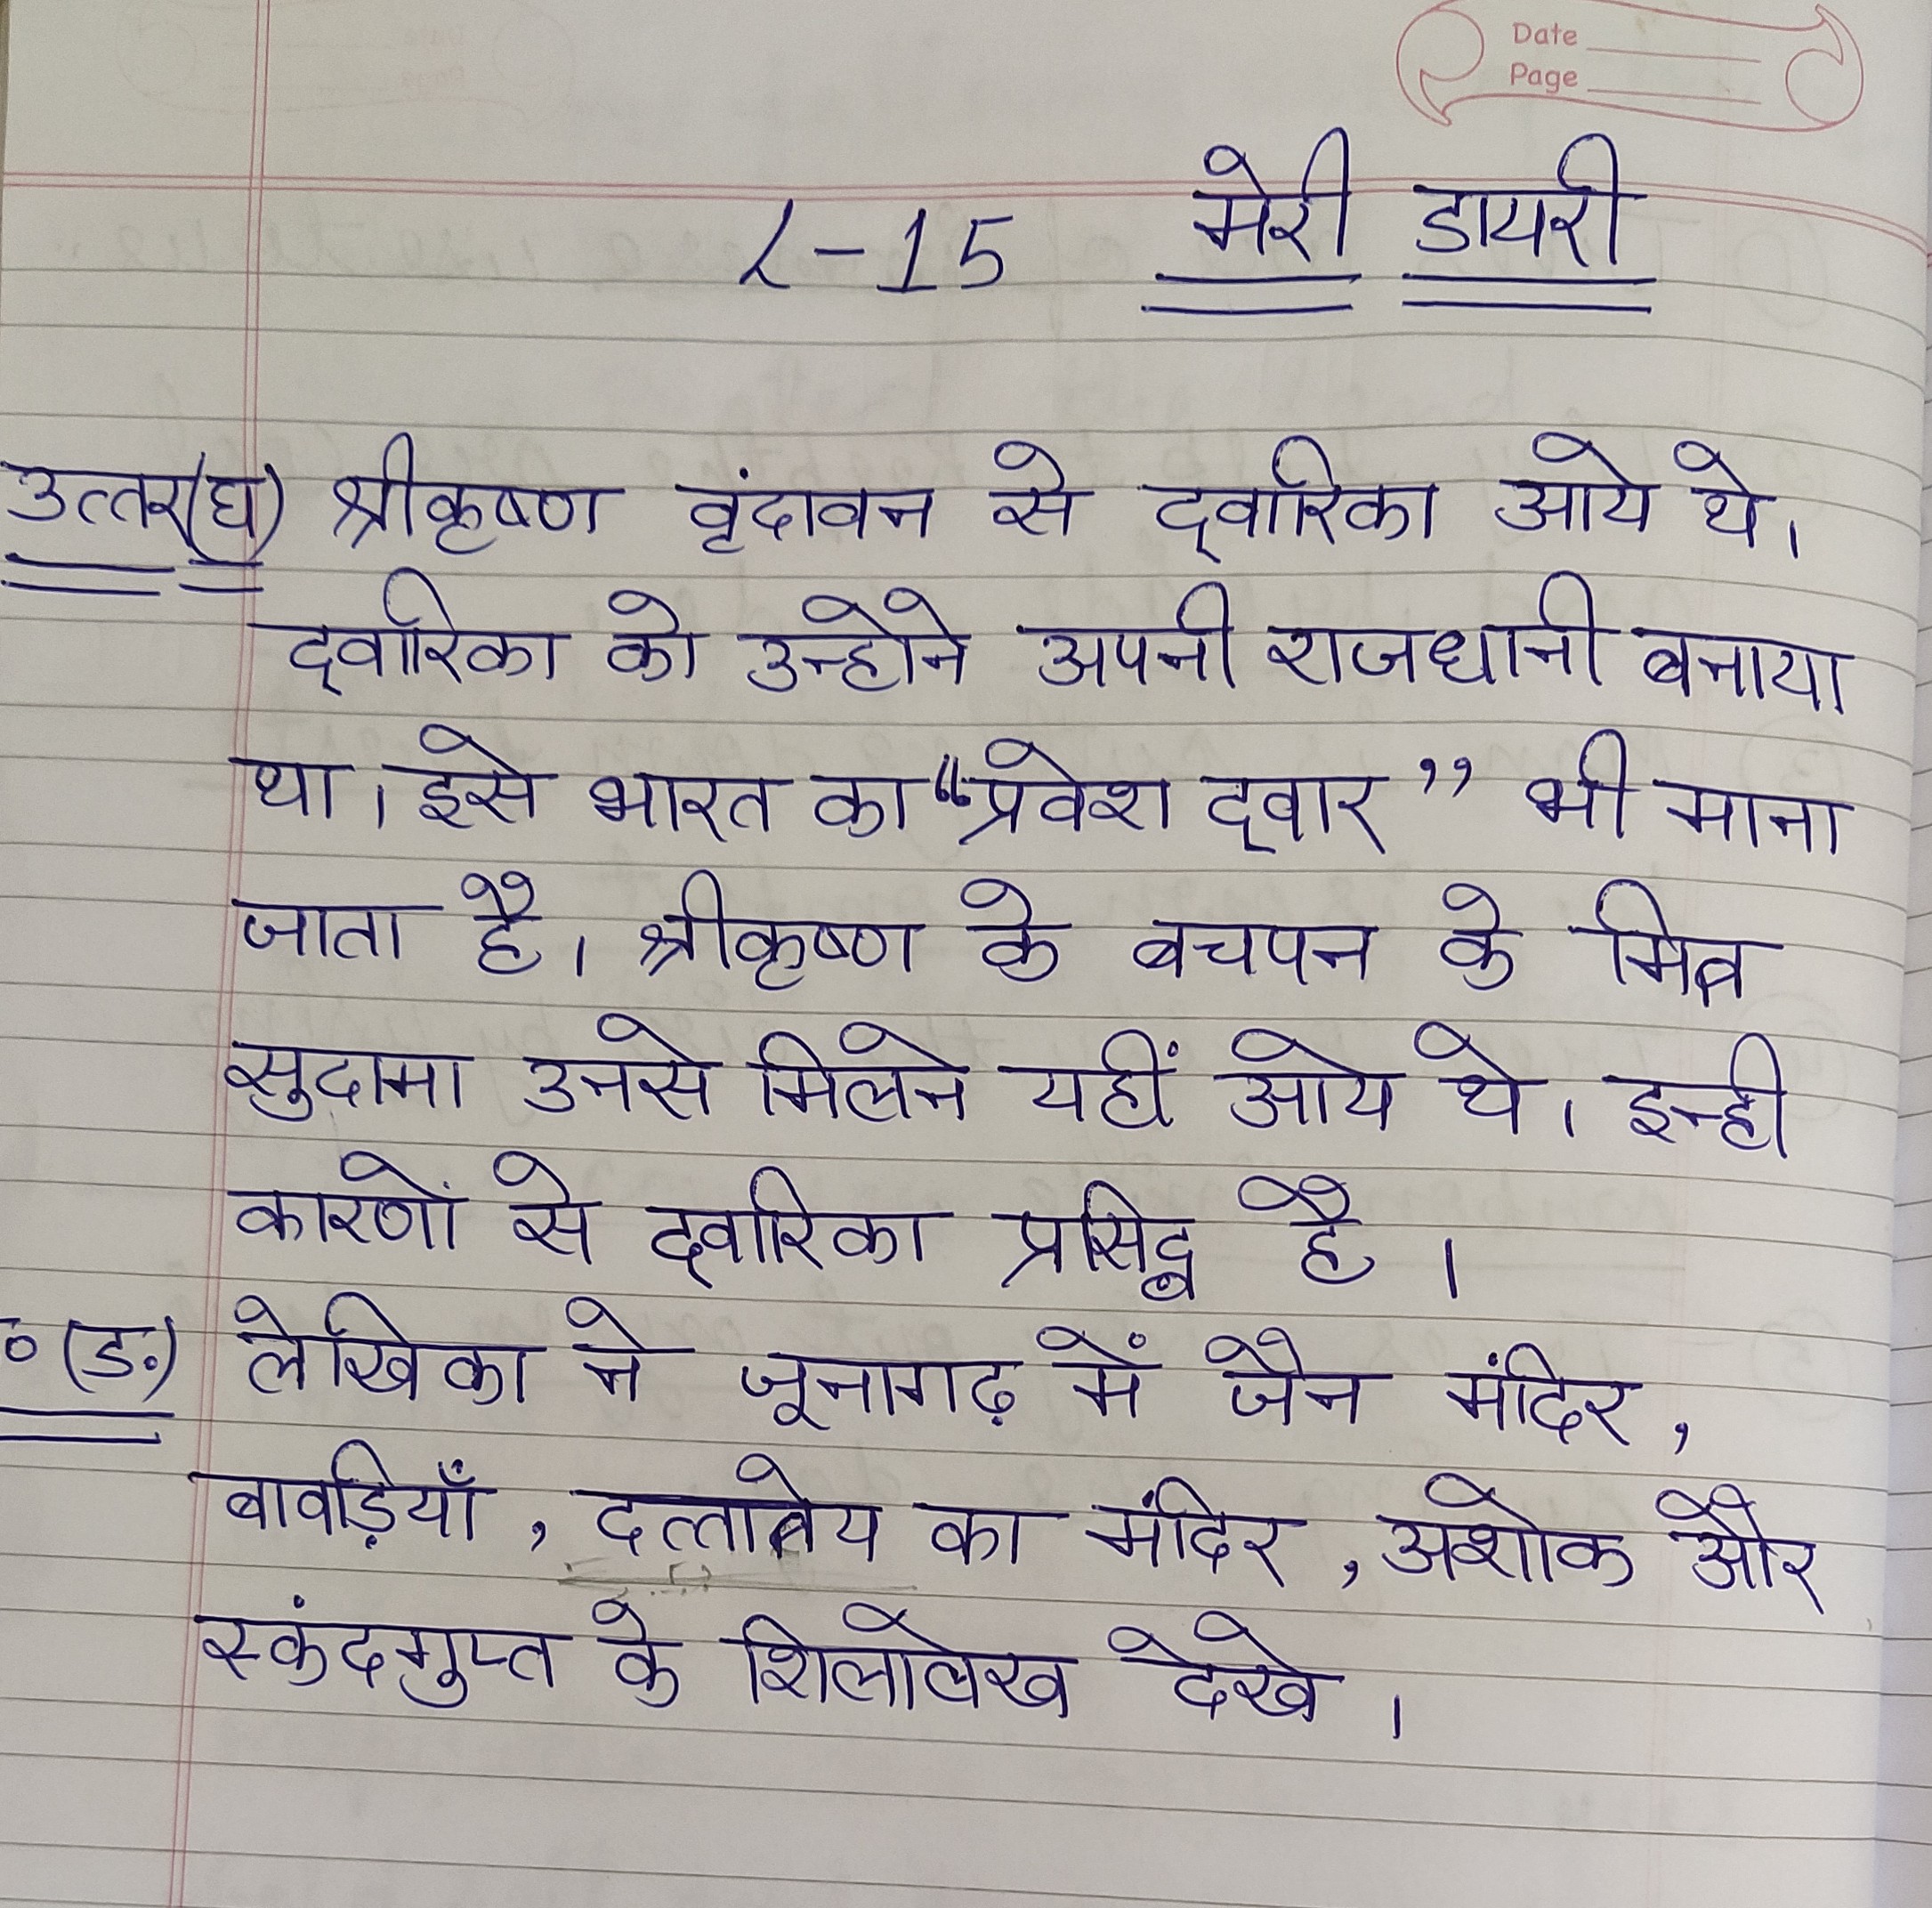 Date
Page
L-15 मेरी डायरी
उत्तर(घ) श्रीकृष्ण वृंदावन से द्वारिका आये थे।
द्वारिका को उन्होने अपनी राजधानी बनाया
था। इसे भारत का “प्रवेश द्वार” भी माना
जाता है। श्रीकृष्ण के बचपन के मित्र
सुदामा उनसे मिलने यहीं आये थे। इन्ही
कारणों से द्वारिका प्रसिद्ध है।
० (ड.) लेखिका ने जूनागढ़ में जैन मंदिर,
बावड़ियाँ, दत्तात्रेय का मंदिर, अशोक और
स्कंदगुप्त के शिलालेख देखे।